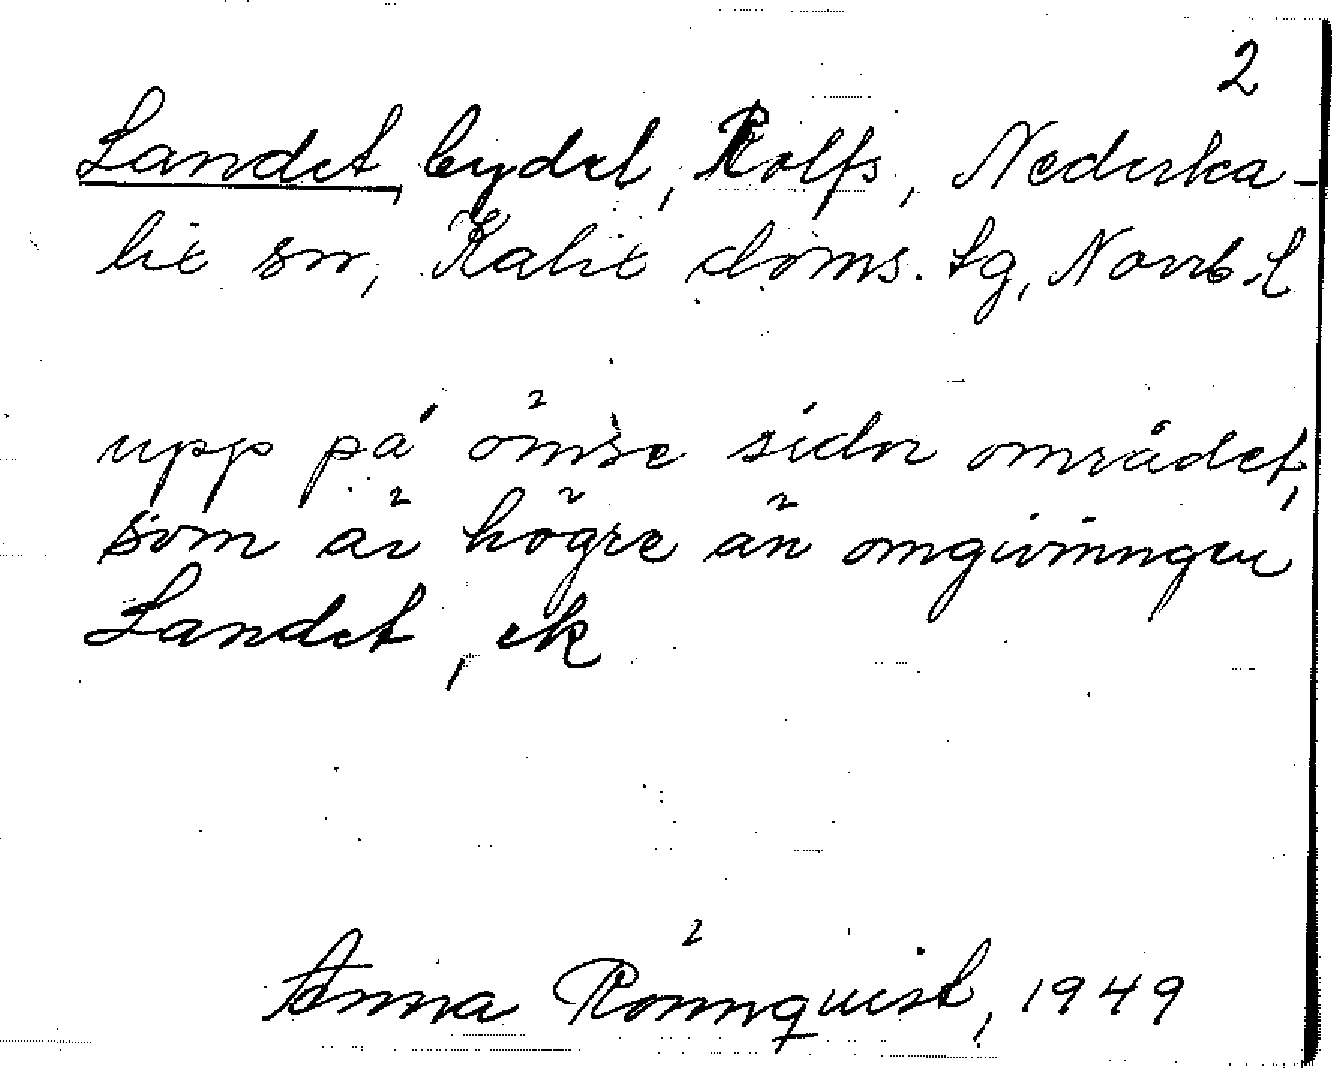 2
Landet, bydel, Rolfs, Nederka-
lix sn, Kalix doms. tg, Norrb. l
upp på ömse sidor området,
som är högre än omgivningen
Landet, ek
Anna Rönnquist, 1949